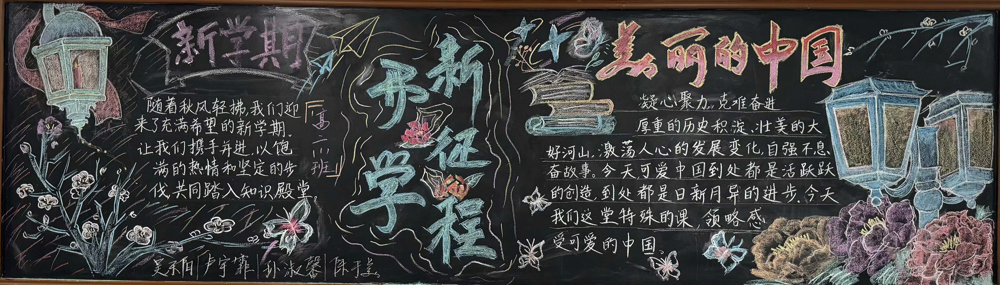 新学期
随着秋风轻拂,我们迎
来了充满希望的新学期.
让我们携手并进,以饱
满的热情和坚定的步
伐,共同踏入知识殿堂
开学
新征程
美丽的中国
凝心聚力,克难奋进
厚重的历史积淀、壮美的大
好河山、激荡人心的发展变化,自强不息、
奋故事。今天可爱中国到处都是活跃跃
的创造,到处都是日新月异的进步,今天
我们这堂特殊的课,领略感
受可爱的中国
卢宇霏 孙淑馨